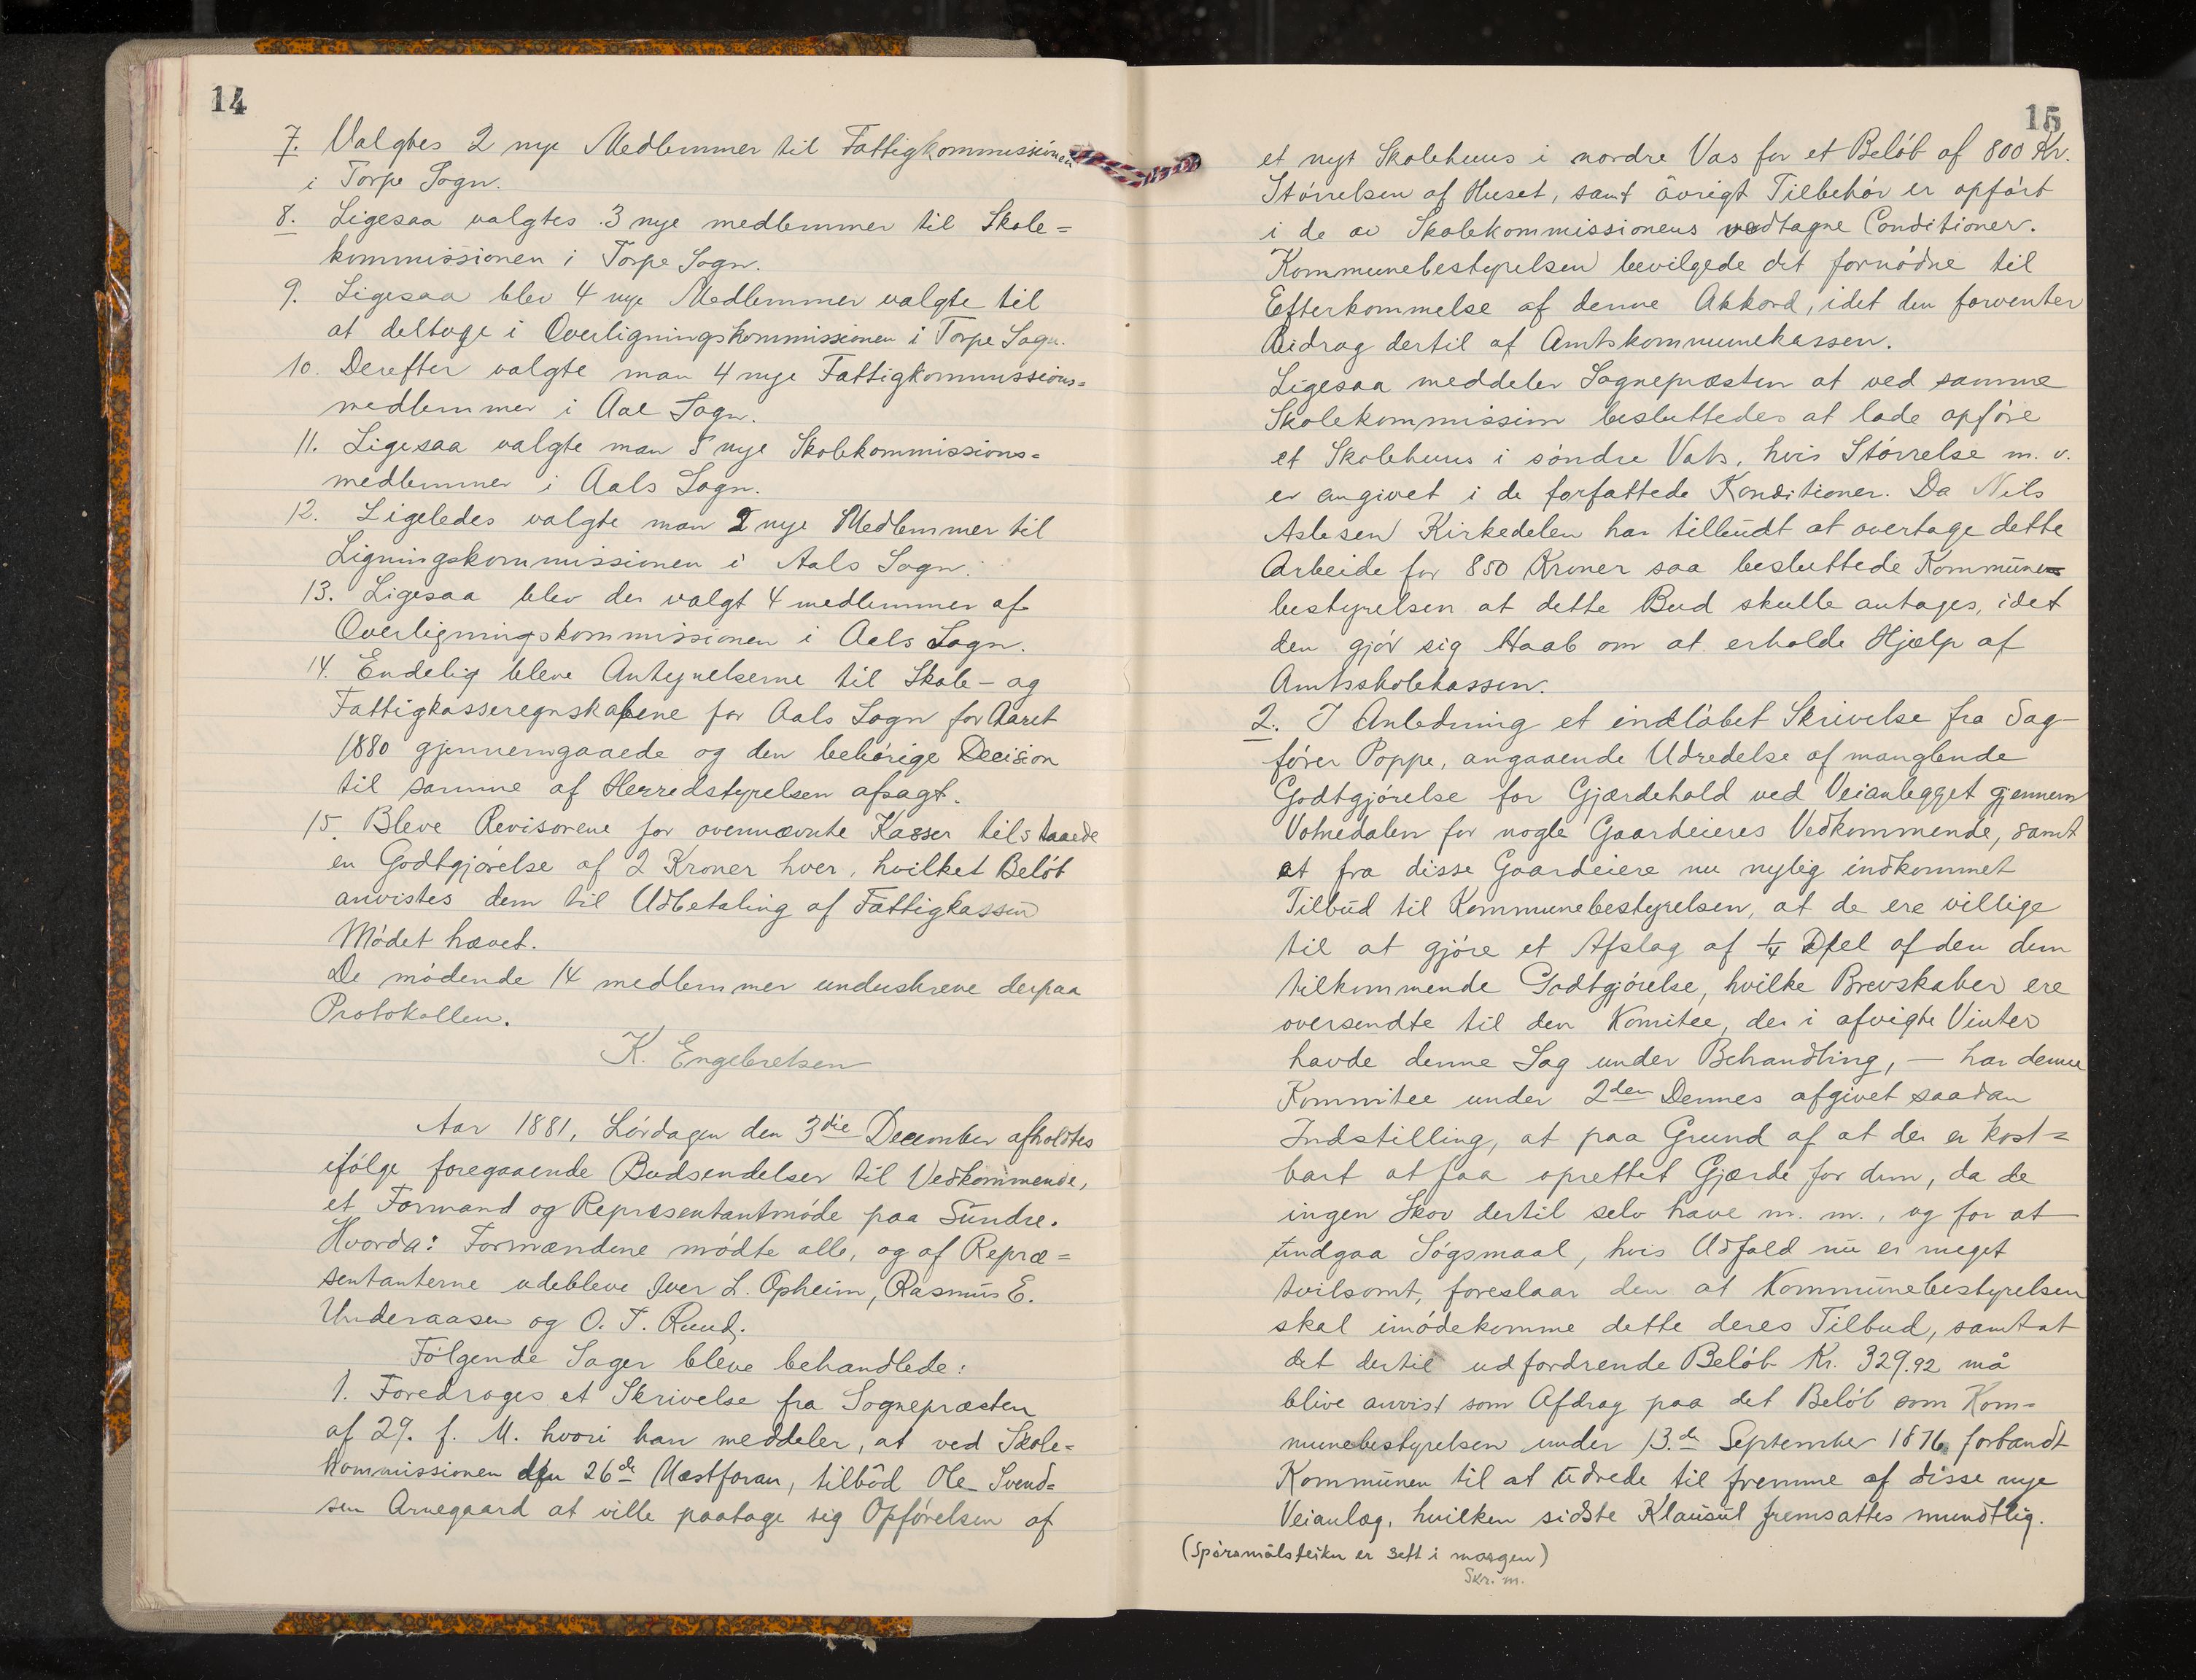 14
7. Valgtes 2 nye Medlemmer til Fattigkommissionen
i Torpe Sogn.
8. Ligesaa valgtes 3 nye medlemmer til Skole=
kommissionen i Torpe Sogn.
9. Ligesaa blev 4 nye Medlemmer valgte til
at deltage i Overligningskommissionen i Torpe Sogn.
10. Derefter valgte man 4 nye Fattigkommissions=
medlemmer i Aal Sogn.
11. Ligesaa valgte man 5 nye Skolekommissions=
medlemmer i Aals Sogn.
12. Ligeledes valgte man 2 nye Medlemmer til
Ligningskommissionen i Aals Sogn.
13. Ligesaa blev der valgt 4 medlemmer af
Overligningskommissionen i Aals Sogn.
14. Endelig bleve Antegnelserne til Skole- og
Fattigkasseregnskabene for Aals Sogn for Aaret
1880 gjennemgaaede og den behørige Decision
til samme af Herredstyrelsen afsagt.
15. Bleve Revisorene for ovennævnte Kasser tilstaaede
en Godtgjørelse af 2 Kroner hver, hvilket Beløb
anvistes dem til Udbetaling af Fattigkassen
Mødet hævet.
De mødende 14 medlemmer underskreve derpaa
Protokollen.
K. Engebretsen
Aar 1881, Lørdagen den 3die December afholdtes
ifølge foregaaende Budsendelser til Vedkommende,
et Formand og Repræsentantmøde paa Sundre.
Hvorda: Formændene mødte alle, og af Repræ=
sentanterne udebleve Iver L. Opheim, Rasmus E.
Underaasen og O. T. Ruud.
Følgende Sager bleve behandlede:
1. Foredroges et Skrivelse fra Sognepræsten
af 29. f. M. hvori han meddeler, at ved Skole=
kommissionen den 26de Næstforan, tilbød Ole Svend=
sen Arnegaard at ville paatage sig Opførelsen af
15
et nyt Skolehuus i nordre Vas for et Beløb af 800 Kr.
Størrelsen af Huset, samt øvrigt Tilbehør er opført
i de av Skolekommissionens vedtagne Conditioner.
Kommunebestyrelsen bevilgede det fornødne til
Efterkommelse af denne Akkord, idet den forventer
Bidrag dertil af Amtskommunekassen.
Ligesaa meddeler Sognepræsten at ved samme
Skolekommission besluttedes at lade opføre
et Skolehuus i søndre Vats, hvis Størrelse m. v.
er angivet i de forfattede Konditioner. Da Nils
Aslesen Kirkedelen har tilbudt at overtage dette
Arbeide for 850 Kroner saa besluttede Kommune
bestyrelsen at dette Bud skulle antages, idet
den gjør sig Haab om at erholde Hjælp af
Amtsskolekassen.
2. I Anledning et indløbet Skrivelse fra Sag-
fører Poppe, angaaende Udredelse af manglende
Godtgjørelse for Gjærdehold ved Veianlegget gjennem
Votnedalen for nogle Gaardeieres Vedkommende, samt
at fra disse Gaardeiere nu nylig indkommet
Tilbud til Kommunebestyrelsen, at de ere villige
til at gjøre et Afslag af 1/4 Del af den dem
tilkommende Godtgjørelse, hvilke Brevskaber ere
oversendte til den Komitee, der i afvigte Vinter
havde denne Sag under Behandling, — har denne
Kommitee under 2den Dennes afgivet saadan
Indstilling, at paa Grund af at der er kost=
bart at faa oprettet Gjærde for dem, da de
ingen Skov dertil selv have m. m., og for at
undgaa Søgsmaal, hvis Udfald nu er meget
tvilsomt, foreslaar den at Kommunebestyrelsen
skal imødekomme dette deres Tilbud, samt at
det dertil udfordrende Beløb Kr. 329.92 må
blive anvist som Afdrag paa det Beløb som Kom=
munebestyrelsen under 13.de September 1876 forbandt
Kommunen til at udrede til fremme af disse nye
Veianlæg, hvilken sidste Klausul fremsattes mundtlig.
(Spørsmålsteikn er sett i margen)
Skr. m.